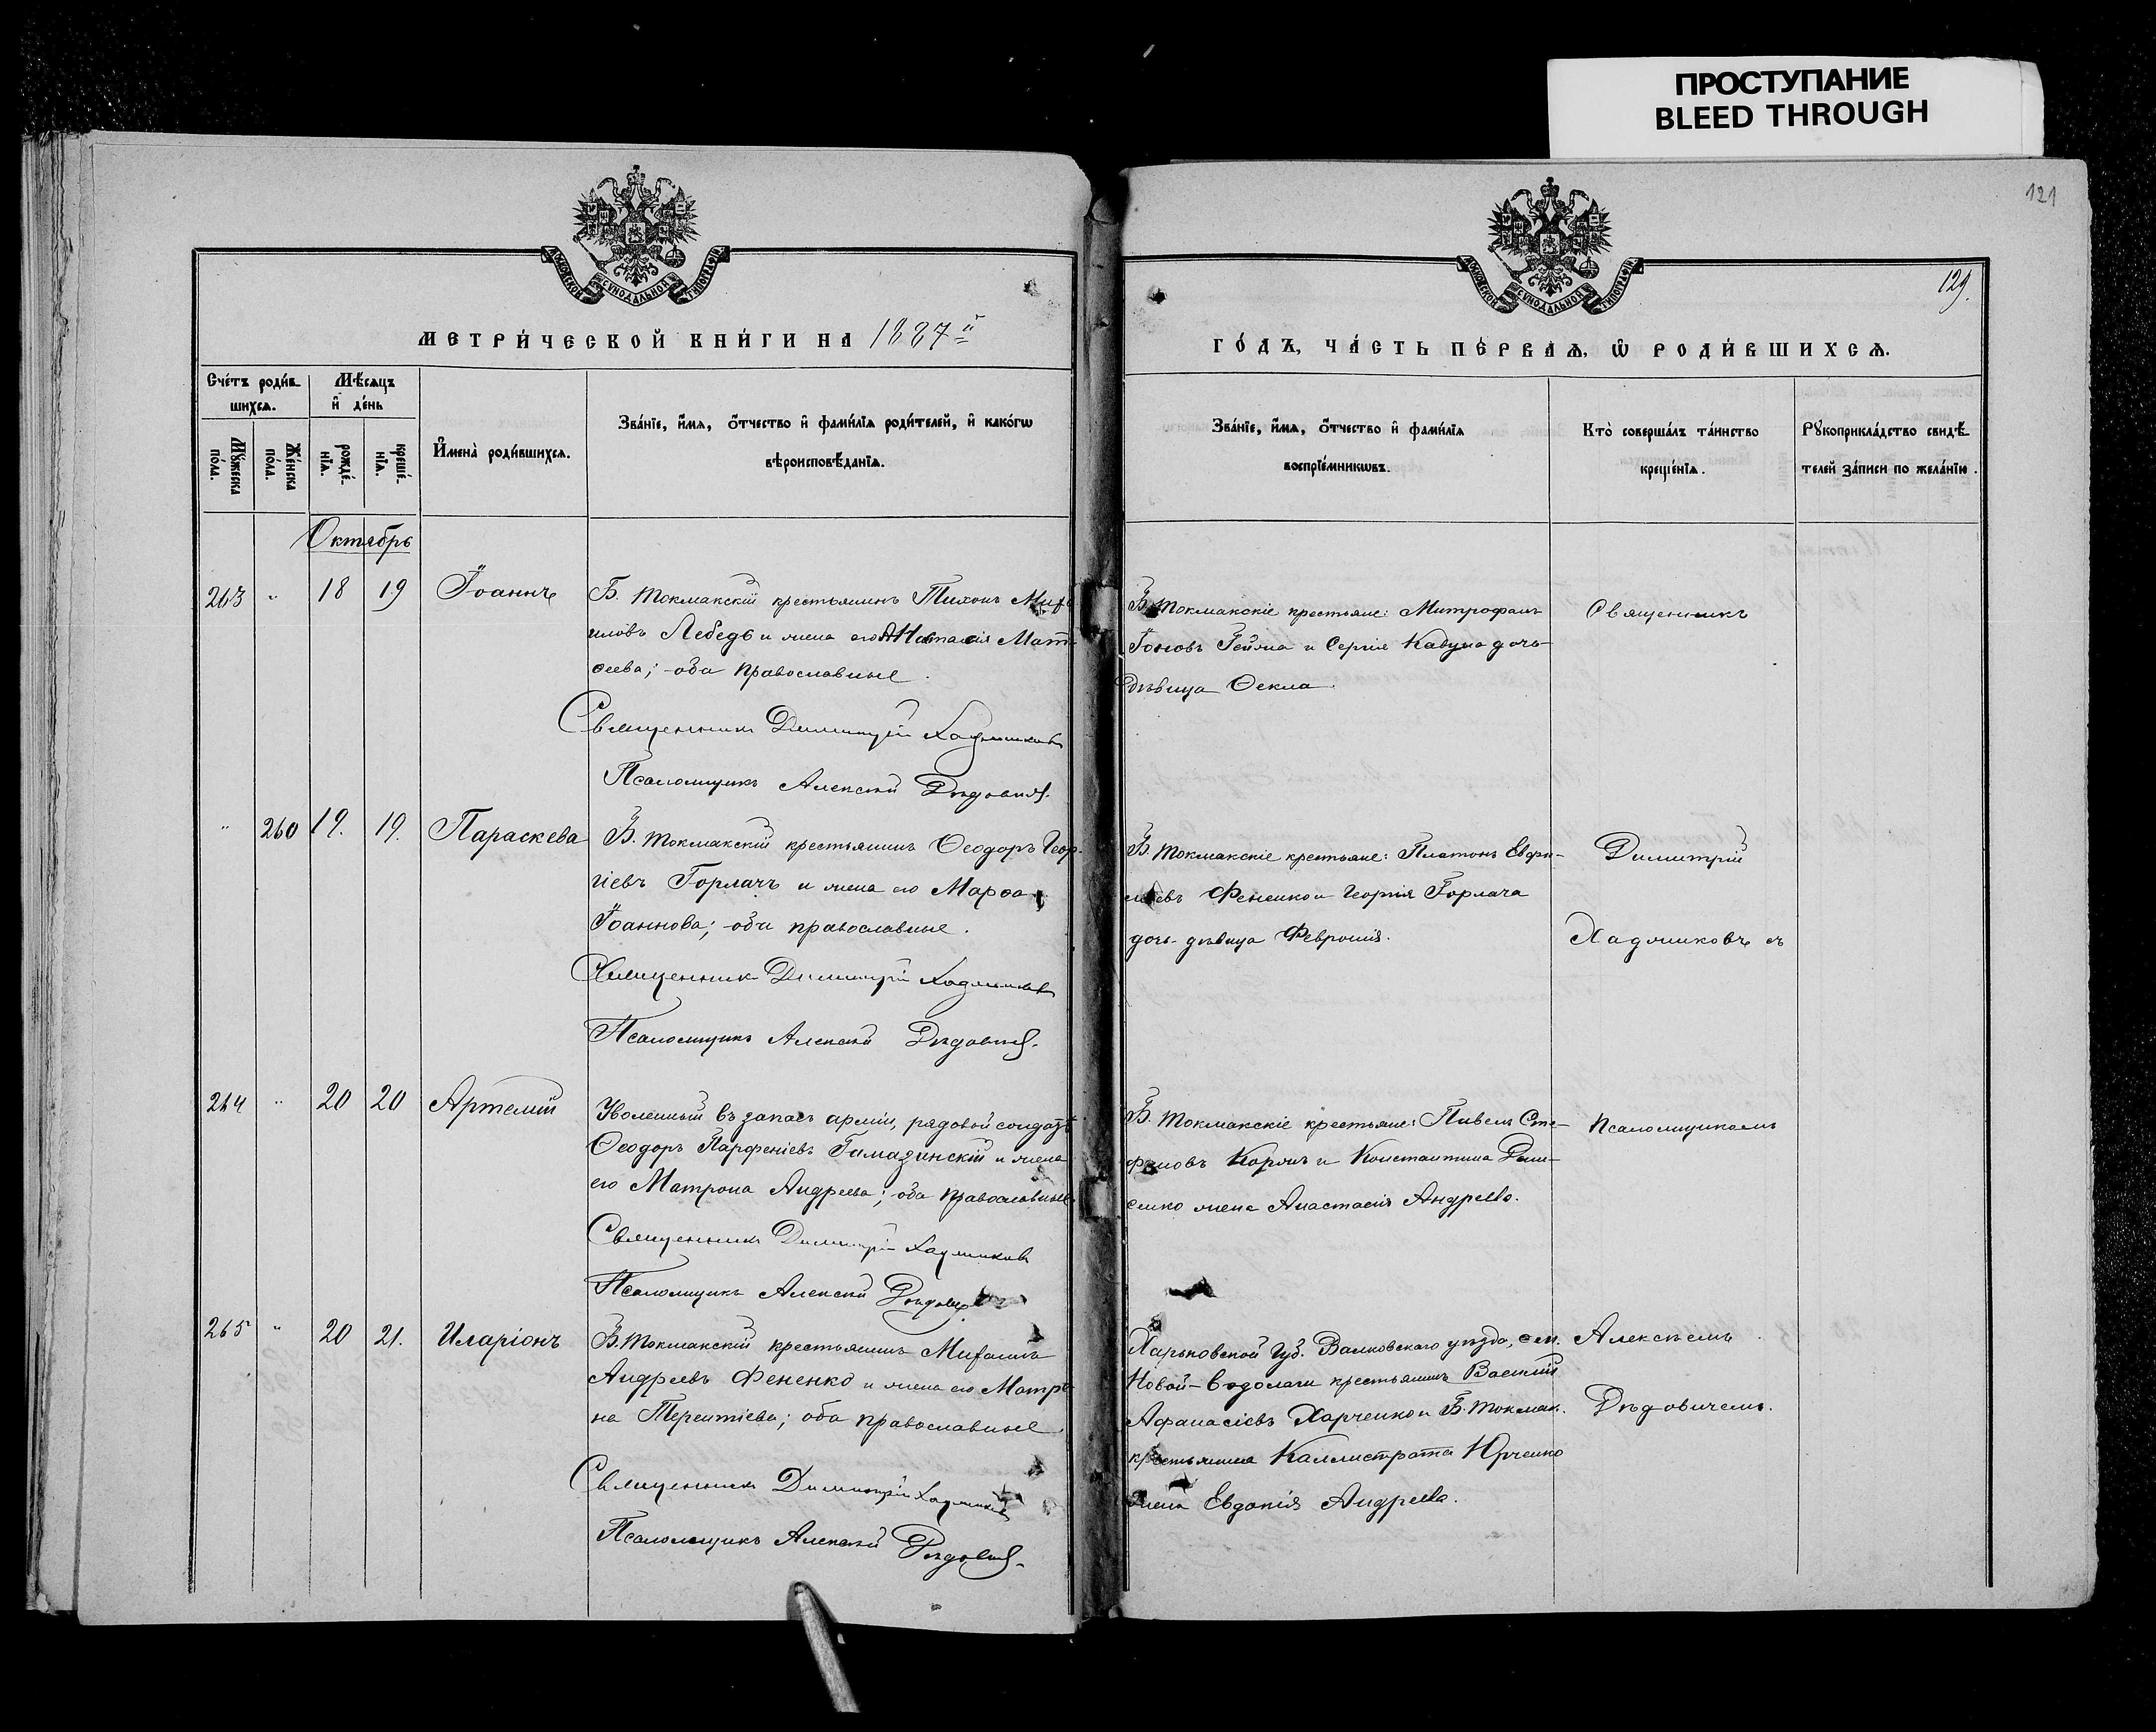 ПРОСТУПАНИЕ
BLEED THROUGH
121
129.
МОСКОВСКОЙ СѴНОДАЛЬНОЙ ТИПОГРАФІИ
МОСКОВСКОЙ СѴНОДАЛЬНОЙ ТИПОГРАФІИ
МЕТРИ́ЧЕСКОЙ КНИ́ГИ НА 1887й
ГО́ДЪ, ЧА́СТЬ ПЕ́РВАѦ, Ѡ҆ РОДИ́ВШИХСѦ.
Сче́тъ роди́в-
шихсѧ.
Мꙋ́жеска по́ла.
Же́нска по́ла.
Мѣ́сѧцъ
и҆ де́нь
рожде́-
нїѧ.
креще́-
нїѧ.
И҆мена̀ роди́вшихсѧ.
Зва́нїе, и҆́мѧ, о҆́тчество и҆ фами́лїѧ роди́телей, и҆ како́гѡ
вѣроисповѣ́данїѧ.
Зва́нїе, и҆́мѧ, о҆́тчество и҆ фами́лїѧ
воспрїе́мникѡвъ.
Кто̀ соверша́лъ та́инство
креще́нїѧ.
Рꙋкоприкла́дство свидѣ́-
телей за́писи по жела́нїю.
Октябрь
263 " 18 19 Іоаннъ
Б. Токмакскій крестьянинъ Тихонъ Миха
иловъ Лебедь и жена его Наталія Мат-
ѳеева; оба православные.
Священникъ Димитрій Хаджиновъ
Псаломщикъ Алексѣй Дѣдовичъ.
Б. Токмакскіе крестьяне: Митрофанъ
Іоновъ Гейжа и Сергія Кавуна дочь
дѣвица Ѳекла.
Священникъ
" 260 19. 19. Параскева
Б. Токмакскій крестьянинъ Ѳеодоръ Геор-
гіевъ Горлачъ и жена его Марѳа
Іоаннова; оба православные.
Священникъ Димитрій Хаджиновъ
Псаломщикъ Алексѣй Дѣдовичъ.
Б. Токмакскіе крестьяне: Платонъ
Фененко и Георгія Горлача
дочь дѣвица Февронія.
Димитрій
Хаджиновъ съ
264 " 20 20 Артемій
Уволенный въ запасъ арміи, рядовой солдатъ
Ѳеодоръ Парфеніевъ и жена
его Матрона Андреева; оба православные
Священникъ Димитрій Хаджиновъ
Псаломщикъ Алексѣй Дѣдовичъ
Б. Токмакскіе крестьяне: Павелъ Сте-
фановъ и Константина
жена Анастасія Андреева.
псаломщикомъ
265 " 20 21. Иларіонъ
Б. Токмакскій крестьянинъ Михаилъ
Андреевъ Фененко и жена его Матро
на Терентіева; оба православные
Священникъ Димитрій Хаджиновъ
Псаломщикъ Алексѣй Дѣдовичъ.
Харьковской Губ. Валковскаго уѣзда, сел.
Новой-Водолаги крестьянинъ Василій
Афанасіевъ Харченко и Б. Токмак.
крестьянина Каллистрата Юрченко
жена Евдокія Андреева.
Алексѣемъ
Дѣдовичемъ.